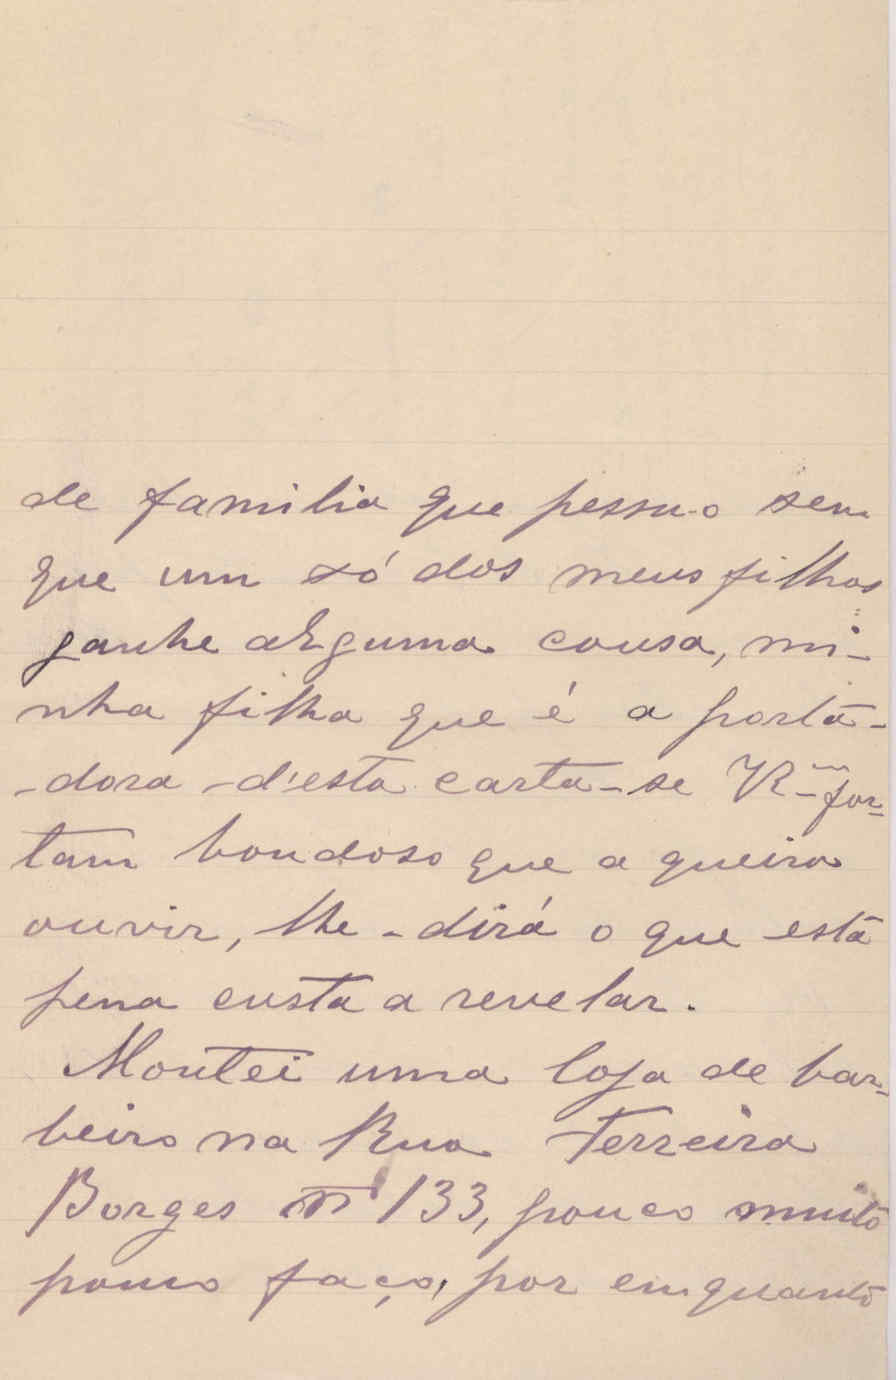 de familia que possuo sem
que um só dos meus filhos
ganhe alguma cousa, mi-
nha filha que é a porta-
-dora d'esta carta se V. for
tam bondoso que a queira
ouvir, lhe dirá o que esta
pena custa a revelar.
Montei uma loja de bar-
beiro na Rua Ferreira
Borges nº 133, pouco muito
pouco faço, por emquanto